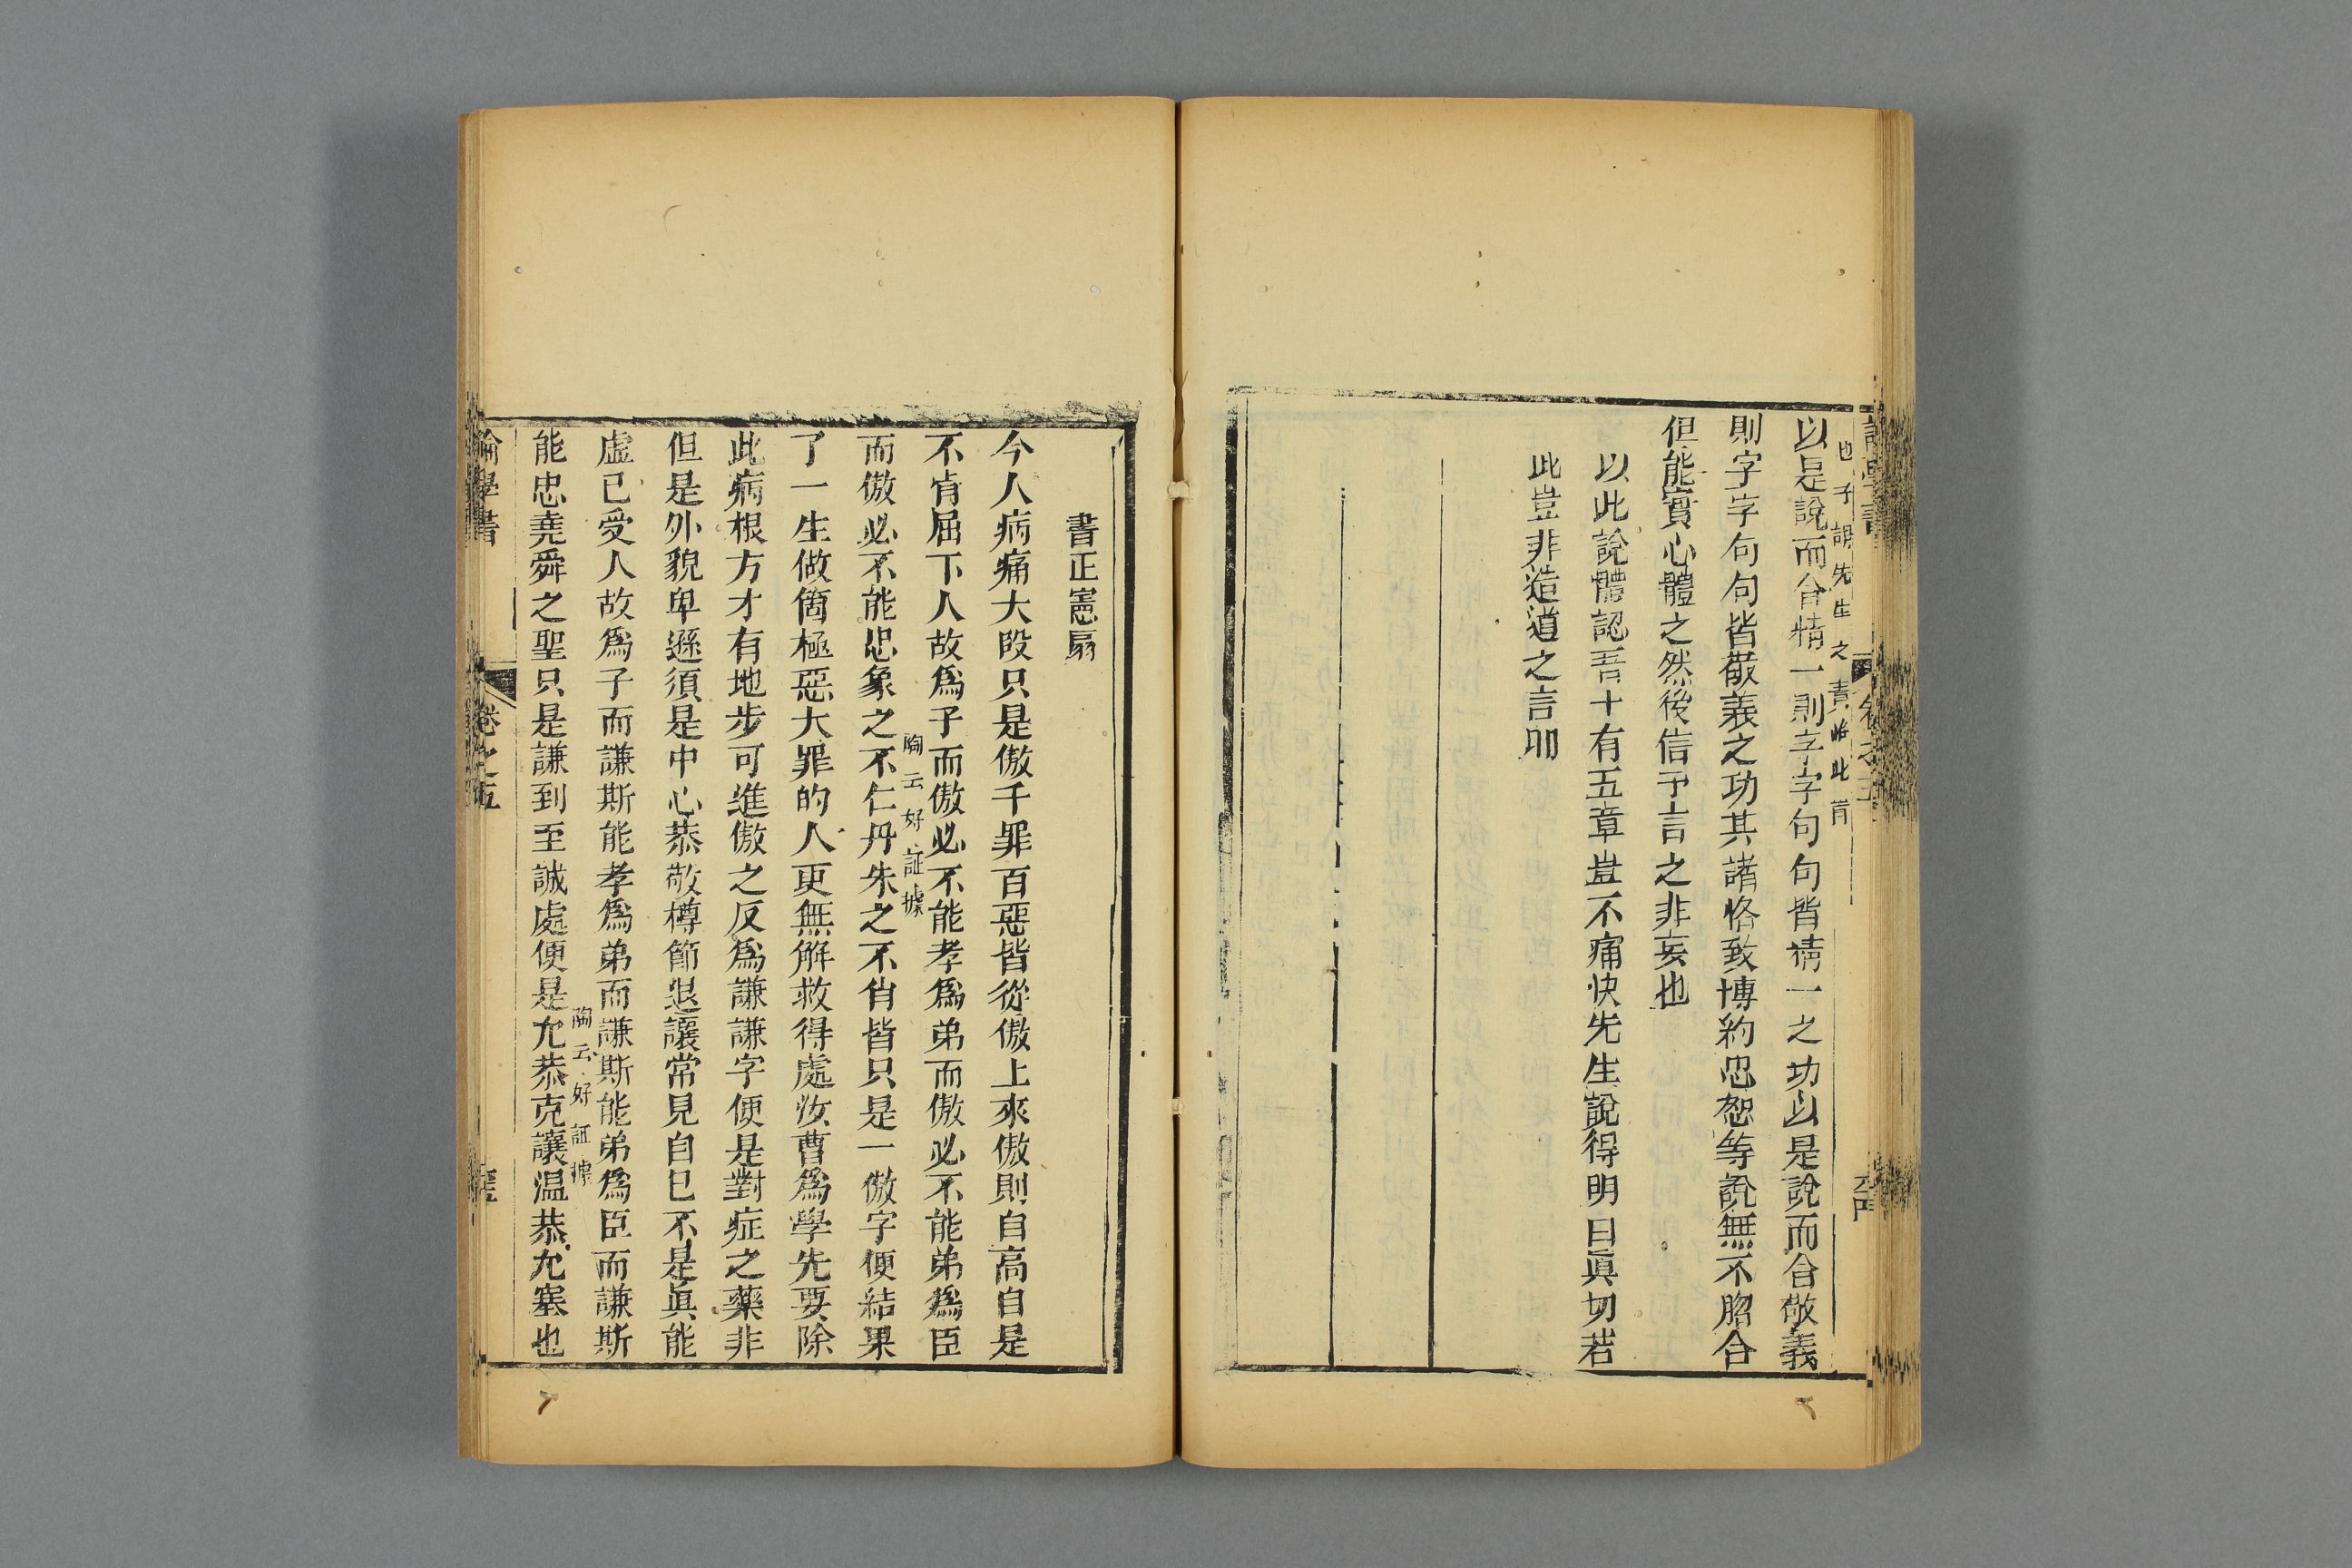 也子謂先生之責將此肯
以是說而合精一則字字句句皆精一之功以是說而合敬義
則字字句句皆敬義之功其諸格致博約忠恕等說無不脗合
但能實心體之然後信予言之非妄也
以此說體認吾十有五章豈不痛快先生說得明白眞切若
此豈非造道之言耶
書正憲扇
今人病痛大段只是傲千罪百惡皆從傲上來傲則自高自是
不肯屈下人故爲子而傲必不能孝爲弟而傲必不能弟爲臣
陶云好証據
而傲必不能忠象之不仁丹朱之不肖皆只是一傲字便結果
了一生做箇極惡大罪的人更無解救得處汝曹爲學先要除
此病根方才有地步可進傲之反爲謙謙字便是對症之藥非
但是外貌卑遜須是中心恭敬樽節退讓常見自己不是眞能
虛己受人故爲子而謙斯能孝爲弟而謙斯能弟爲臣而謙斯
陶云好証據
能忠堯舜之聖只是謙到至誠處便是允恭克讓温恭允塞也
論學書 卷之五